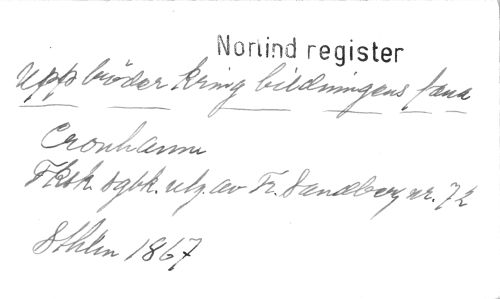 Norlind register
Upp bröder kring bildningens fana
Cronhamn
Fksk. sgbk. utg. av Fr. Sandberg nr. 72
Sthlm 1867